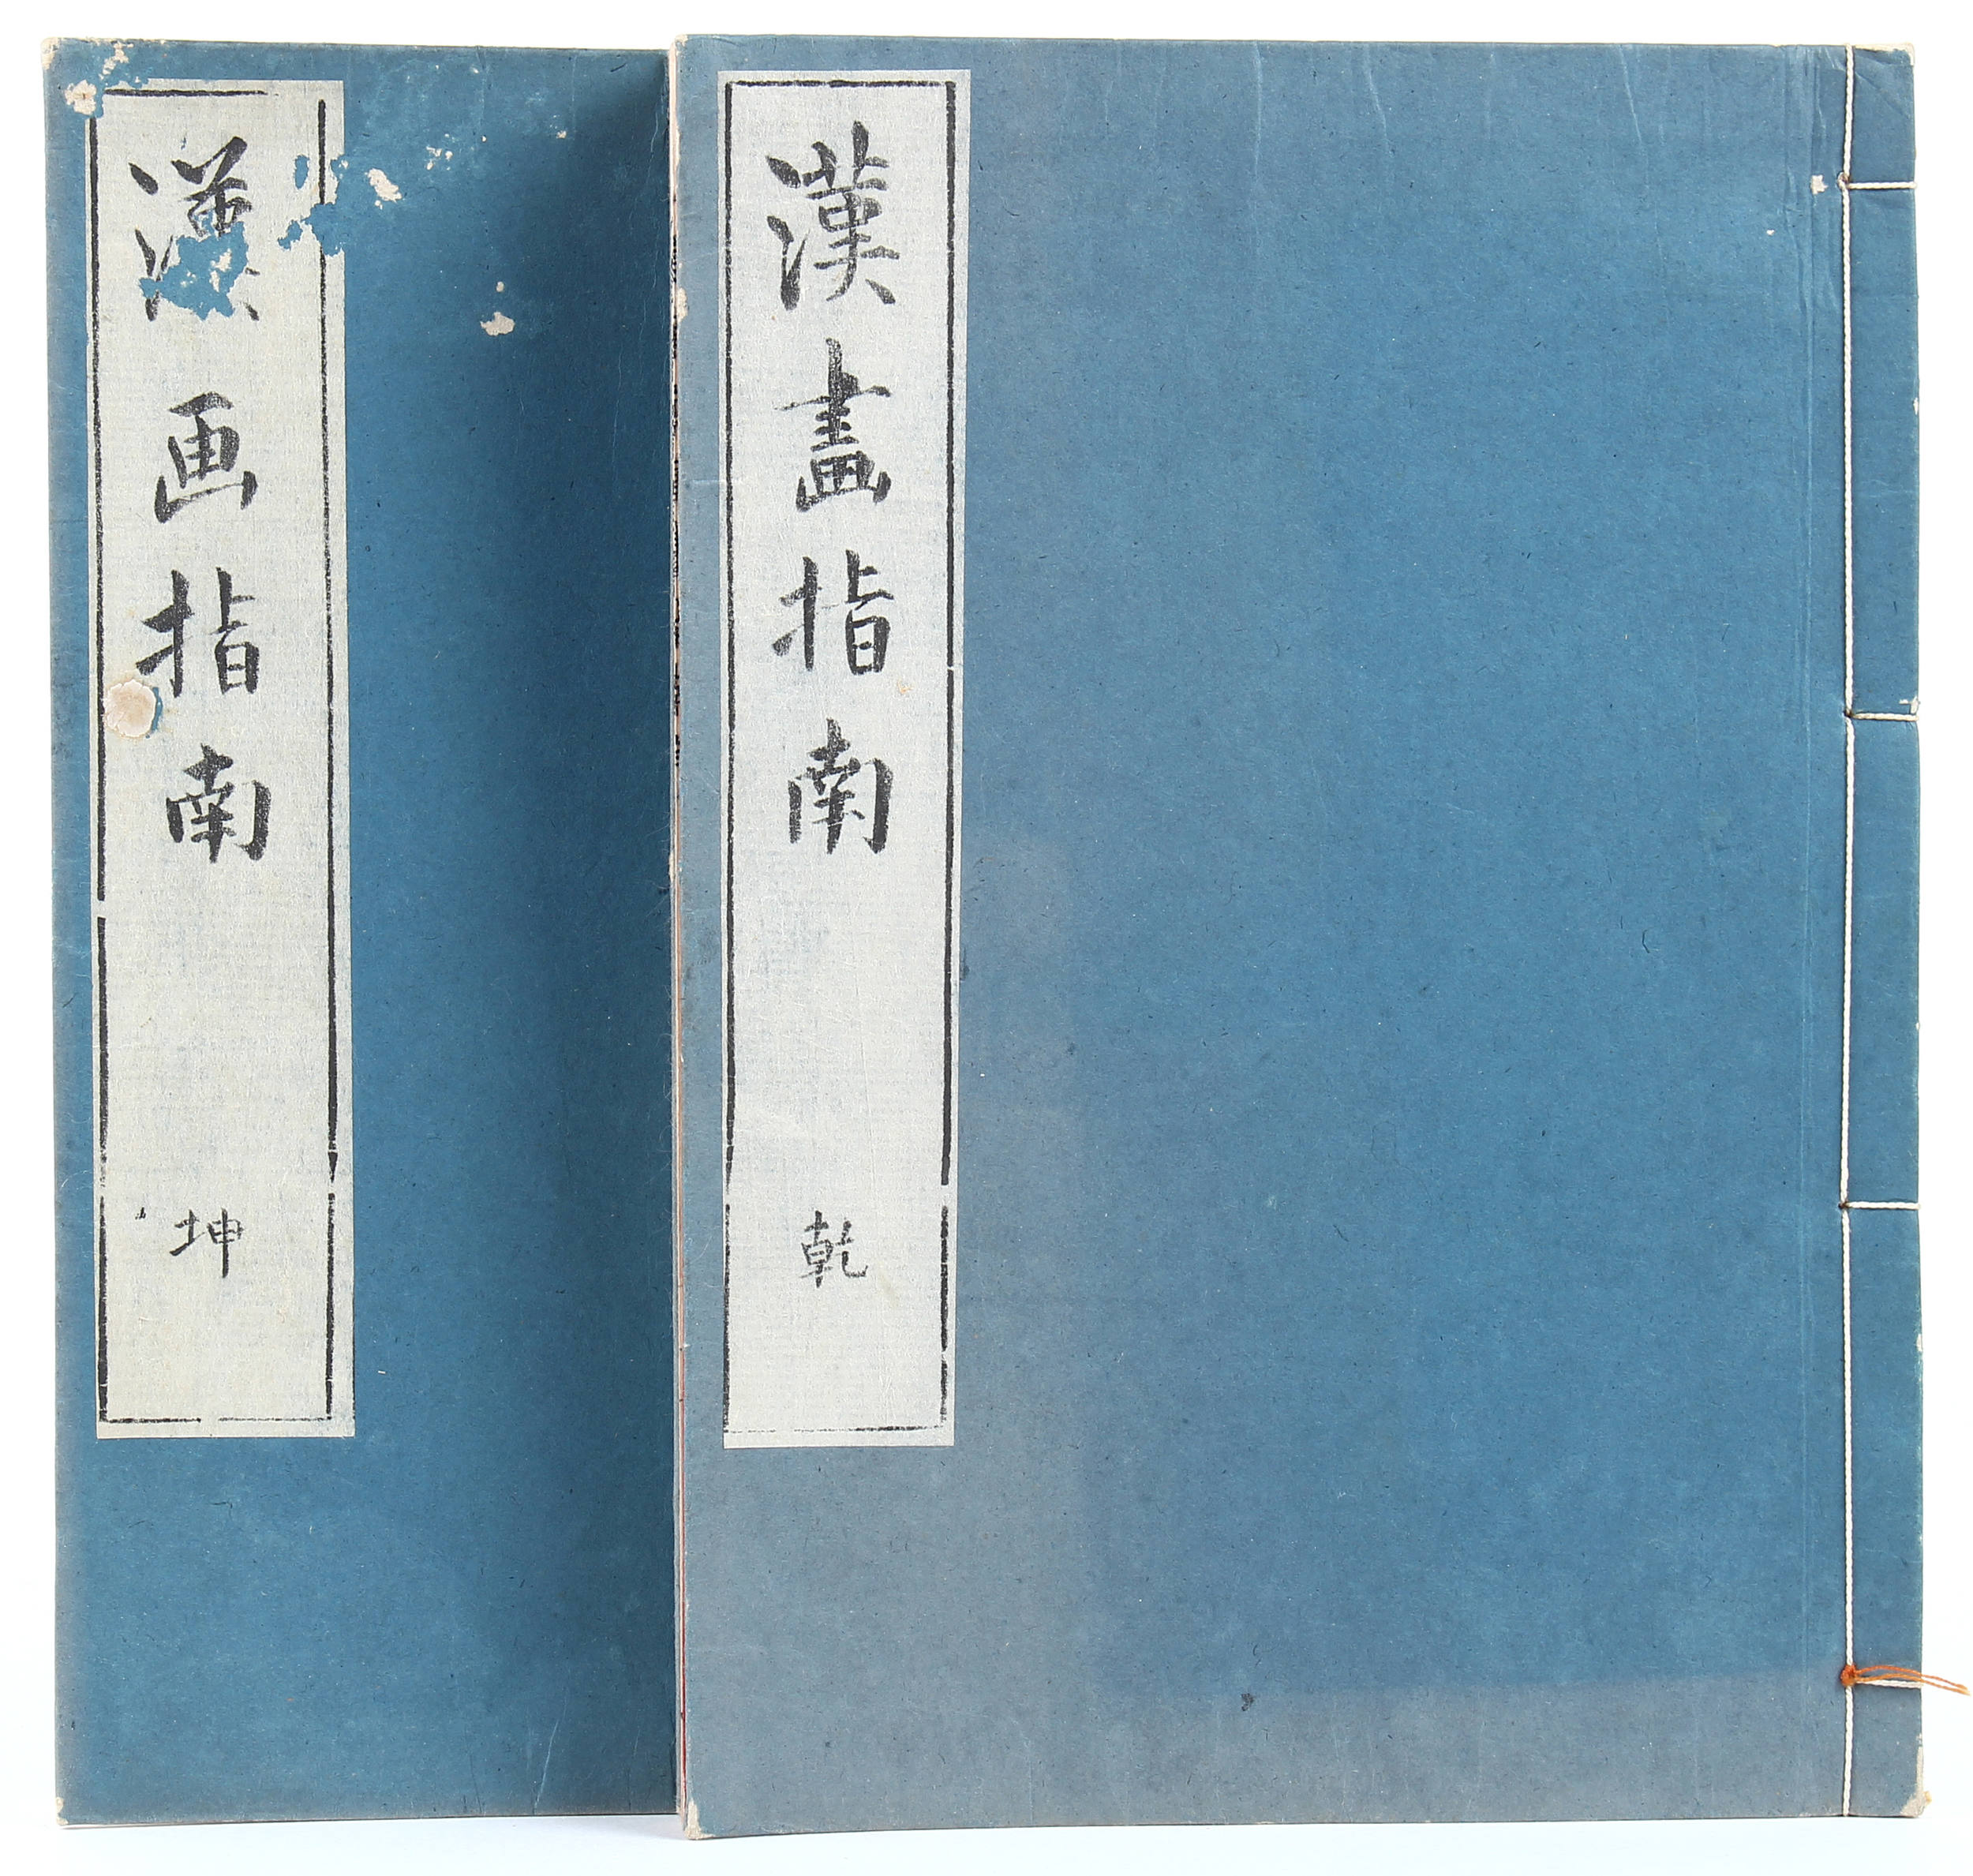 漢畫指南
乾
漢画指南
坤